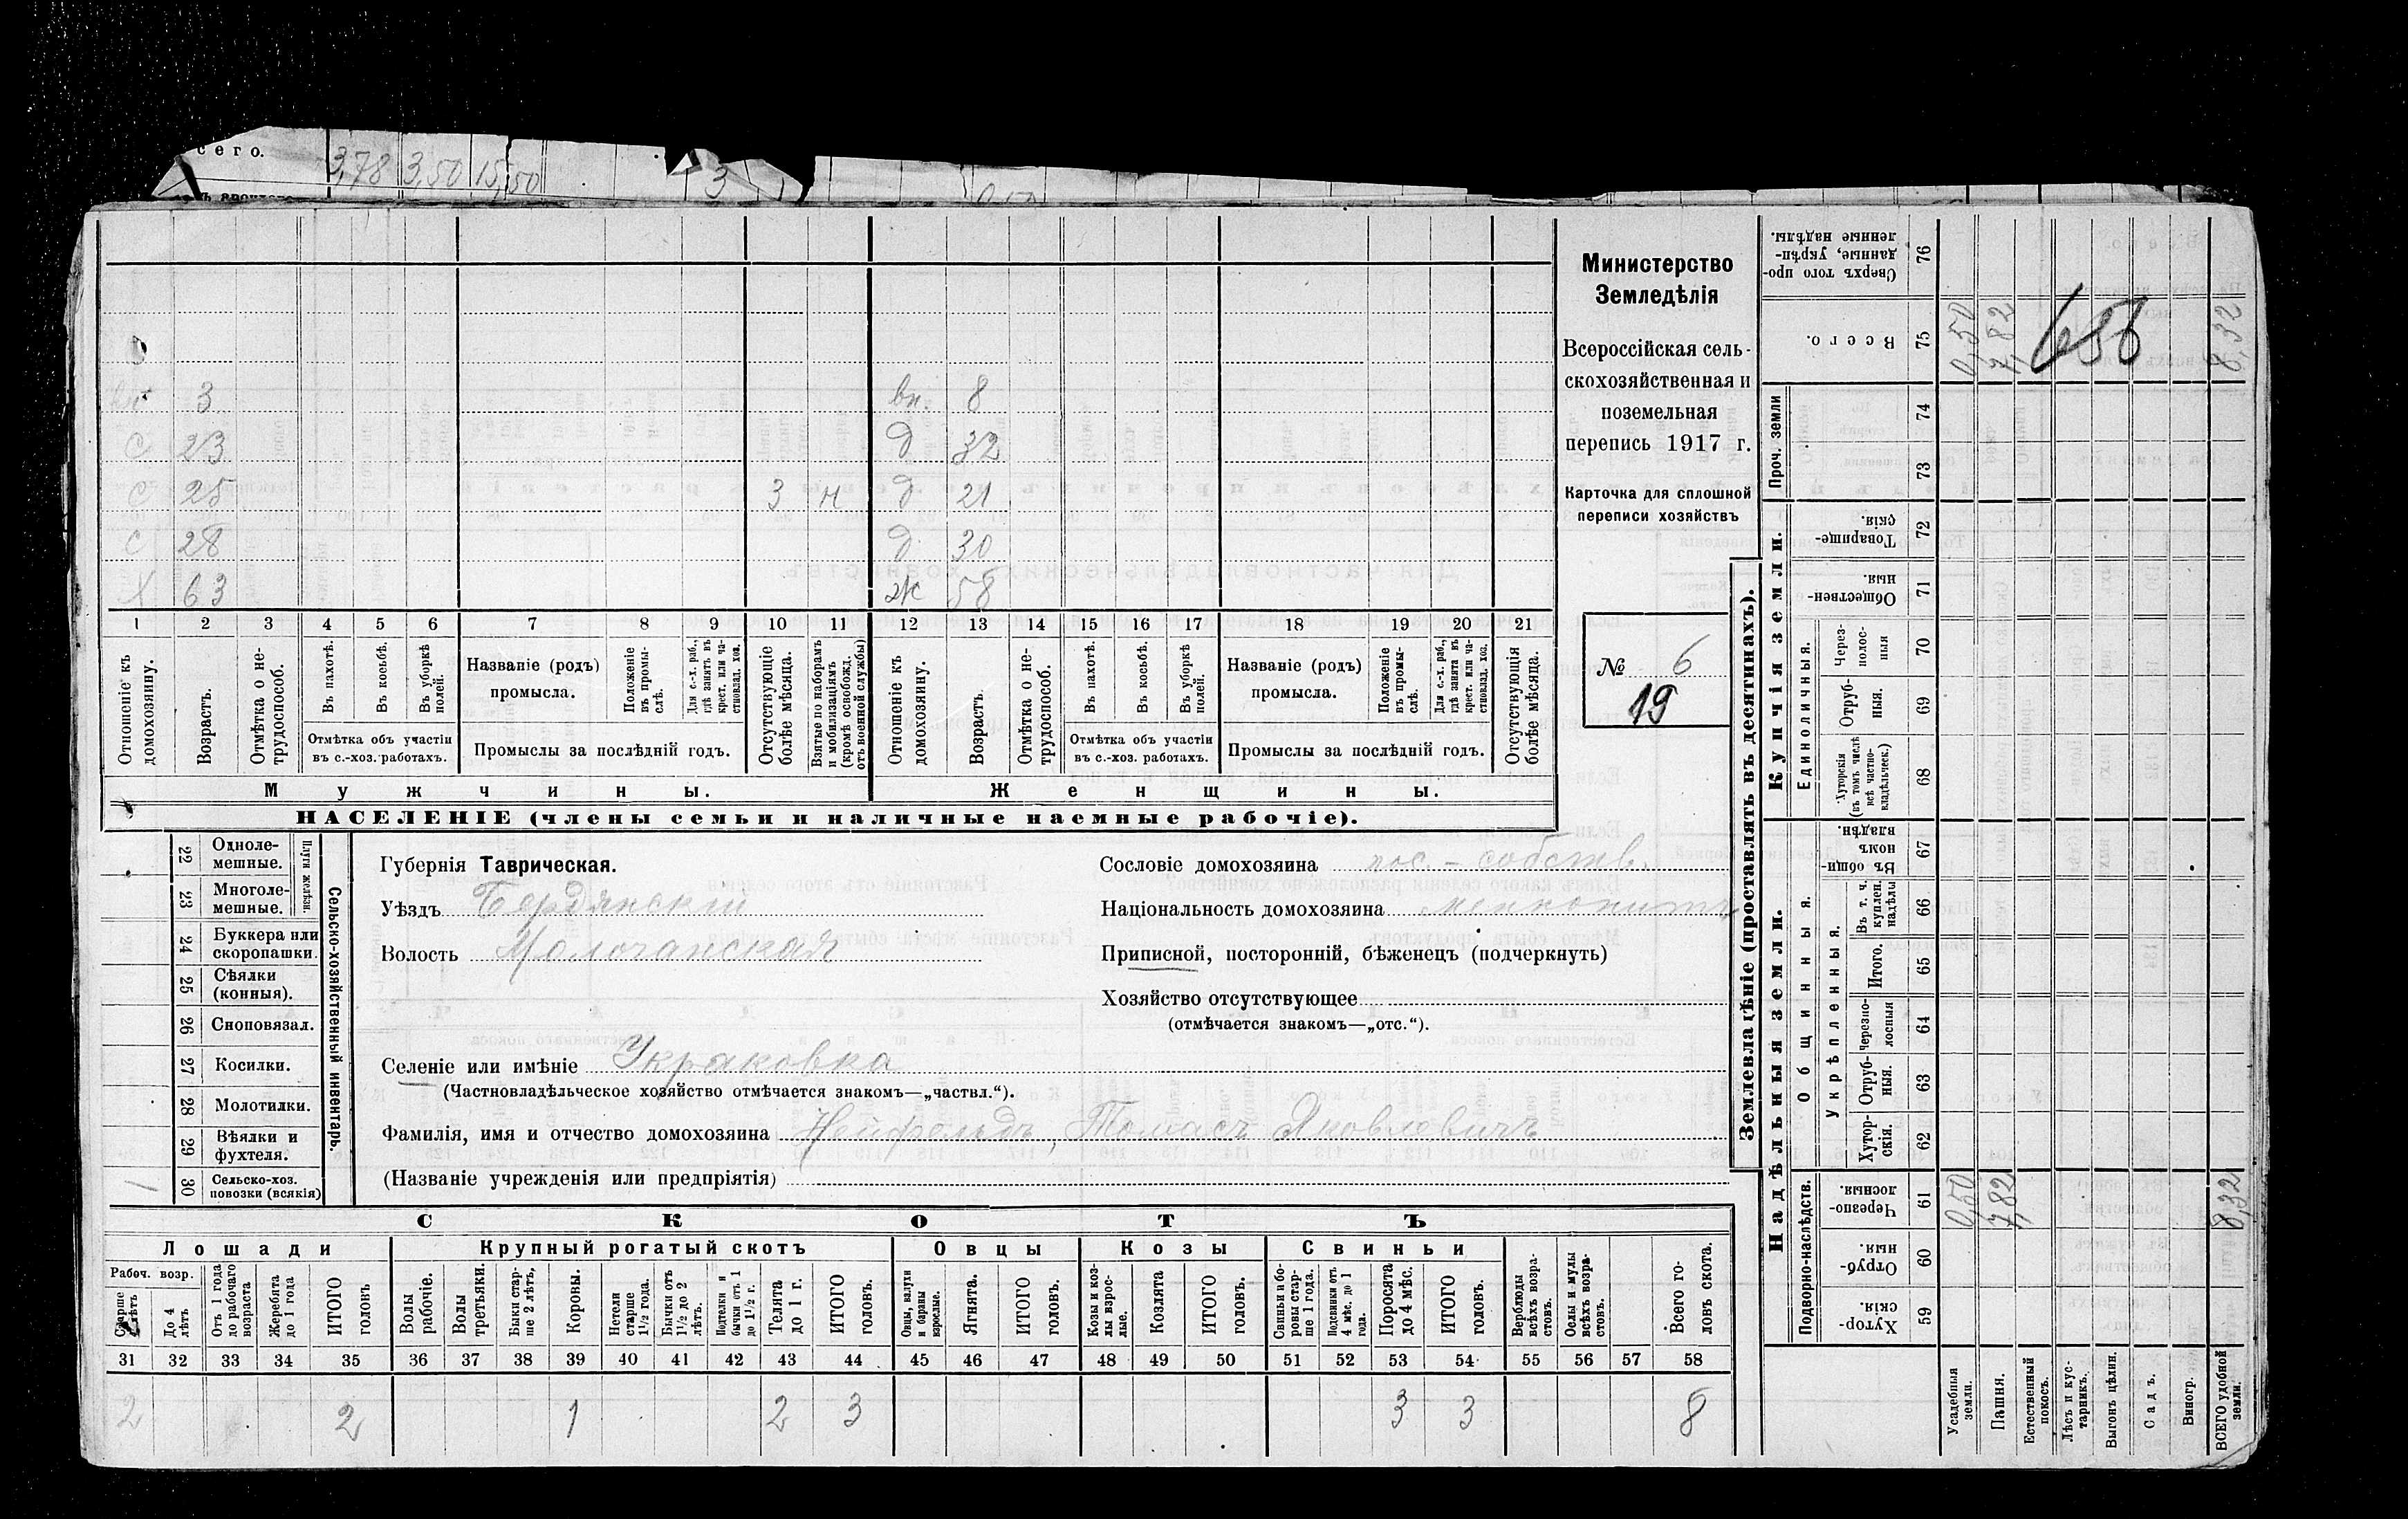 сего.
3,78 3,50 15,50
3
Министерство
Земледѣлія
Всероссійская сель-
скохозяйственная и
поземельная
перепись 1917 г.
Карточка для сплошной
переписи хозяйствъ
№ 6
19
вн 3 вн. 8
с 23 д 32
с 25 3 н д 21
с 28 д. 30
х 63 ж 58
1 2 3 4 5 6 7 8 9 10 11 12 13 14 15 16 17 18 19 20 21
Отношеніе къ домохозяину.
Возрастъ.
Отмѣтка о не-трудоспособ.
Въ пахотѣ.
Въ косьбѣ.
Въ уборкѣ полей.
Отмѣтка объ участіи
въ с.-хоз. работахъ.
Названіе (родъ)
промысла.
Положеніе въ промы-слѣ.
Для с.-х. раб., гдѣ занятъ въ крест. или ча-стновлад. хоз.
Промыслы за послѣдній годъ.
Отсутствующіе болѣе мѣсяца.
Взятые по наборамъ и мобилизаціямъ (кромѣ освобожд. отъ военной службы)
Отношеніе къ домохозяину.
Возрастъ.
Отмѣтка о не-трудоспособ.
Въ пахотѣ.
Въ косьбѣ.
Въ уборкѣ полей.
Отмѣтка объ участіи
въ с.-хоз. работахъ.
Названіе (родъ)
промысла.
Положеніе въ промы-слѣ.
Для с.-х. раб., гдѣ занята въ крест. или ча-стновлад. хоз.
Промыслы за послѣдній годъ.
Отсутствующія болѣе мѣсяца.
Мужчины. Женщины.
НАСЕЛЕНІЕ (члены семьи и наличные наемные рабочіе).
22 Одноле-мешные.
23 Многоле-мешные.
Плуги желѣзн.
24 Буккера или скоропашки.
25 Сѣялки (конныя).
26 Сноповязал.
27 Косилки.
28 Молотилки.
29 Вѣялки и фухтеля.
1 30 Сельско-хоз. повозки (всякія)
Сельско-хозяйственный инвентарь.
Губернія Таврическая.
Уѣздъ Бердянскій
Волость Молочанская
Сословіе домохозяина пос.-собств.
Національность домохозяина меннонитъ
Приписной, посторонній, бѣженецъ (подчеркнуть)
Хозяйство отсутствующее
(отмѣчается знакомъ—„отс.“).
Селеніе или имѣніе Украковка
(Частновладѣльческое хозяйство отмѣчается знакомъ—„частвл.“).
Фамилія, имя и отчество домохозяина Нейфельдъ, Томасъ Яковлевичъ
(Названіе учрежденія или предпріятія)
СКОТЪ
Лошади Крупный рогатый скотъ Овцы Козы Свиньи
Рабоч. возр.
Старше 4 лѣтъ
До 4 лѣтъ
Отъ 1 года до рабочаго возраста
Жеребята до 1 года
ИТОГО головъ
Волы рабочіе.
Волы третьяки.
Быки стар-ше 2 лѣтъ,
Коровы.
Нетели старше 1½ года.
Бычки отъ 1½ до 2 лѣтъ.
Подтелки и бычки отъ 1 до 1½ г.
Телята до 1 г.
ИТОГО головъ.
Овцы, валухи и бараны взрослые.
Ягнята.
ИТОГО головъ.
Козы и коз-лы взрос-лые.
Козлята
ИТОГО головъ.
Свиньи и бо-ровы стар-ше 1 года.
Подсвинки отъ 4 мѣс. до 1 года.
Поросята до 4 мѣс.
ИТОГО головъ.
Верблюды всѣхъ возра-стовъ.
Ослы и мулы всѣхъ возра-стовъ.
Всего го-ловъ скота.
31 32 33 34 35 36 37 38 39 40 41 42 43 44 45 46 47 48 49 50 51 52 53 54 55 56 57 58
2 2 1 2 3 3 3 8
Землевладѣніе (проставлять въ десятинахъ).
Надѣльныя земли. Купчія земли.
Подворно-наслѣдств.
Общинныя.
Укрѣпленныя.
Единоличныя.
Проч. земли
59 Хутор-скія.
60 Отруб-ныя
61 Черезпо-лосныя.
62 Хутор-скія.
63 Отруб-ныя.
64 Черезпо-лосныя
65 Итого.
66 Въ т. ч. куплен. надѣлы
67 Въ общи-номъ владѣн.
68 Хуторскія (въ томъ числѣ всѣ частно-владѣльческ.)
69 Отруб-ныя.
70 Через-полос-ныя
71 Обществен-ныя.
72 Товарище-скія.
73
74
75 Всего.
76 Сверхъ того про-данные, укрѣп-ленные надѣлы.
Усадебныя земли.
Пашня.
Естественный покосъ.
Лѣсъ и кус-тарникъ.
Выгонъ цѣлин.
Садъ.
Виногр.
ВСЕГО удобной земли.
0,50 7,82 8,32
0,50 7,82 8,32
686